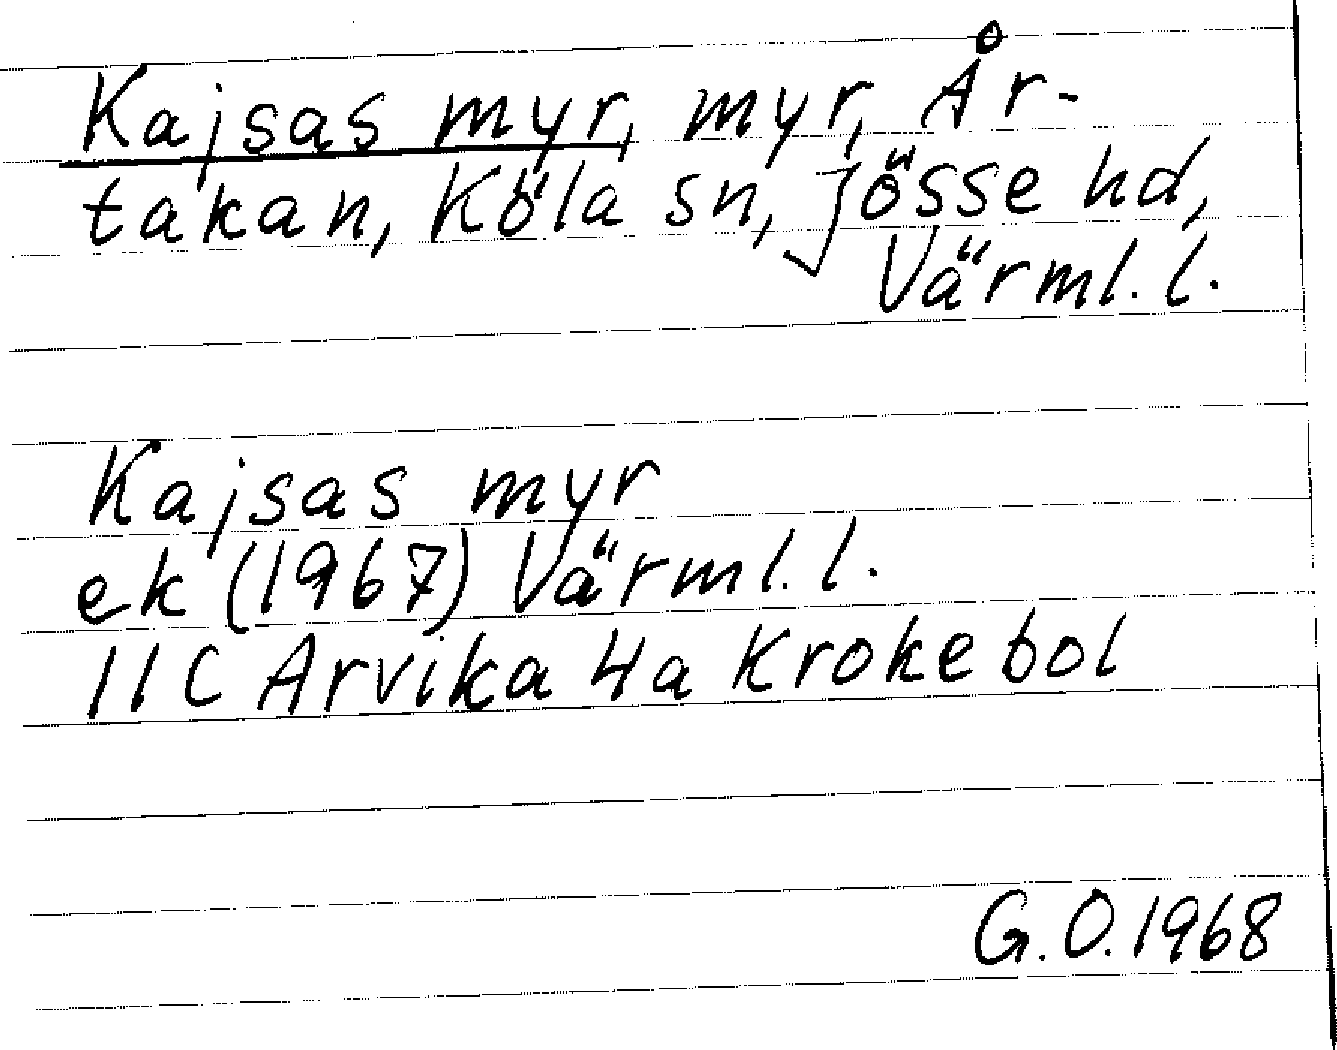 Kajsas myr, myr, År-
takan, Köla sn, Jösse hd,
Värml. l.
Kajsas myr
ek (1967) Värml. l.
11C Arvika 4a Krokebol
G.O. 1968